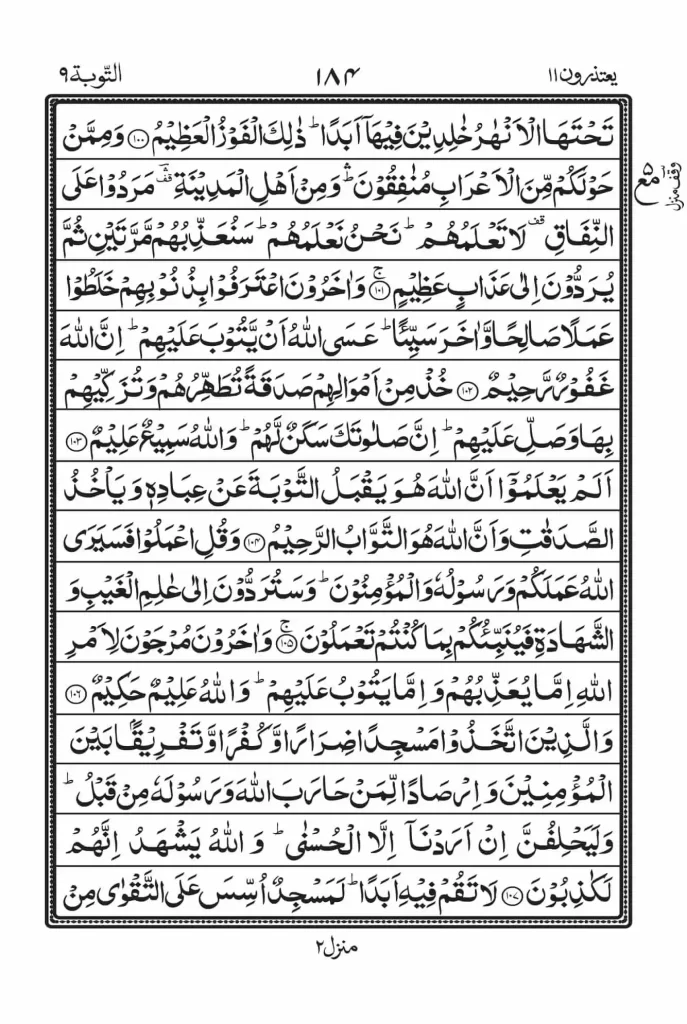 يعتذرون ۱۱ ۱۸۴ التّوبة ۹
تَحْتَهَا الْاَنْهٰرُ خٰلِدِيْنَ فِيْهَاۤ اَبَدًا ؕ ذٰلِكَ الْفَوْزُ الْعَظِيْمُ ﴿۱۰۰﴾ وَ مِمَّنْ
حَوْلَكُمْ مِّنَ الْاَعْرَابِ مُنٰفِقُوْنَ ۛؕ وَ مِنْ اَهْلِ الْمَدِيْنَةِ ۛ۫ؔ مَرَدُوْا عَلَى
النِّفَاقِ ۫ لَا تَعْلَمُهُمْ ؕ نَحْنُ نَعْلَمُهُمْ ؕ سَنُعَذِّبُهُمْ مَّرَّتَيْنِ ثُمَّ
يُرَدُّوْنَ اِلٰى عَذَابٍ عَظِيْمٍ ﴿۱۰۱﴾ۚ وَ اٰخَرُوْنَ اعْتَرَفُوْا بِذُنُوْبِهِمْ خَلَطُوْا
عَمَلًا صَالِحًا وَّ اٰخَرَ سَيِّئًا ؕ عَسَى اللّٰهُ اَنْ يَّتُوْبَ عَلَيْهِمْ ؕ اِنَّ اللّٰهَ
غَفُوْرٌ رَّحِيْمٌ ﴿۱۰۲﴾ خُذْ مِنْ اَمْوَالِهِمْ صَدَقَةً تُطَهِّرُهُمْ وَ تُزَكِّيْهِمْ
بِهَا وَ صَلِّ عَلَيْهِمْ ؕ اِنَّ صَلٰوتَكَ سَكَنٌ لَّهُمْ ؕ وَ اللّٰهُ سَمِيْعٌ عَلِيْمٌ ﴿۱۰۳﴾
اَلَمْ يَعْلَمُوْۤا اَنَّ اللّٰهَ هُوَ يَقْبَلُ التَّوْبَةَ عَنْ عِبَادِهٖ وَ يَاْخُذُ
الصَّدَقٰتِ وَ اَنَّ اللّٰهَ هُوَ التَّوَّابُ الرَّحِيْمُ ﴿۱۰۴﴾ وَ قُلِ اعْمَلُوْا فَسَيَرَى
اللّٰهُ عَمَلَكُمْ وَ رَسُوْلُهٗ وَ الْمُؤْمِنُوْنَ ؕ وَ سَتُرَدُّوْنَ اِلٰى عٰلِمِ الْغَيْبِ وَ
الشَّهَادَةِ فَيُنَبِّئُكُمْ بِمَا كُنْتُمْ تَعْمَلُوْنَ ﴿۱۰۵﴾ۚ وَ اٰخَرُوْنَ مُرْجَوْنَ لِاَمْرِ
اللّٰهِ اِمَّا يُعَذِّبُهُمْ وَ اِمَّا يَتُوْبُ عَلَيْهِمْ ؕ وَ اللّٰهُ عَلِيْمٌ حَكِيْمٌ ﴿۱۰۶﴾
وَ الَّذِيْنَ اتَّخَذُوْا مَسْجِدًا ضِرَارًا وَّ كُفْرًا وَّ تَفْرِيْقًۢا بَيْنَ
الْمُؤْمِنِيْنَ وَ اِرْصَادًا لِّمَنْ حَارَبَ اللّٰهَ وَ رَسُوْلَهٗ مِنْ قَبْلُ ؕ
وَ لَيَحْلِفُنَّ اِنْ اَرَدْنَاۤ اِلَّا الْحُسْنٰى ؕ وَ اللّٰهُ يَشْهَدُ اِنَّهُمْ
لَكٰذِبُوْنَ ﴿۱۰۷﴾ لَا تَقُمْ فِيْهِ اَبَدًا ؕ لَمَسْجِدٌ اُسِّسَ عَلَى التَّقْوٰى مِنْ
مع ۵
وقف منزل
منزل ۲